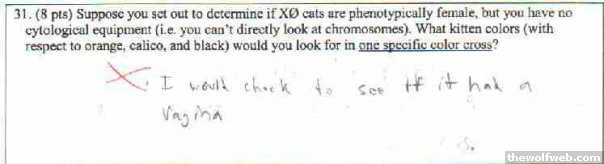 31. (8 pts) Suppose you set out to determine if XØ cats are phenotypically female, but you have no
cytological equipment (i.e. you can't directly look at chromosomes). What kitten colors (with
respect to orange, calico, and black) would you look for in one specific color cross?
I would check to see if it had a
Vagina
thewolfweb.com